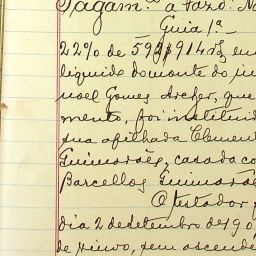 Pagam.to a Faz.da N
Guia 1ª
22% de 59 914 em
liquido do monte do in
noel Gomes Archer, que
mento, foi instituid
sua afilhada Clemen
Guimarães, casada co
Barcellos Guimarães
O testador f
dia 2 de setembro de 190
de xinvo, sem ascende